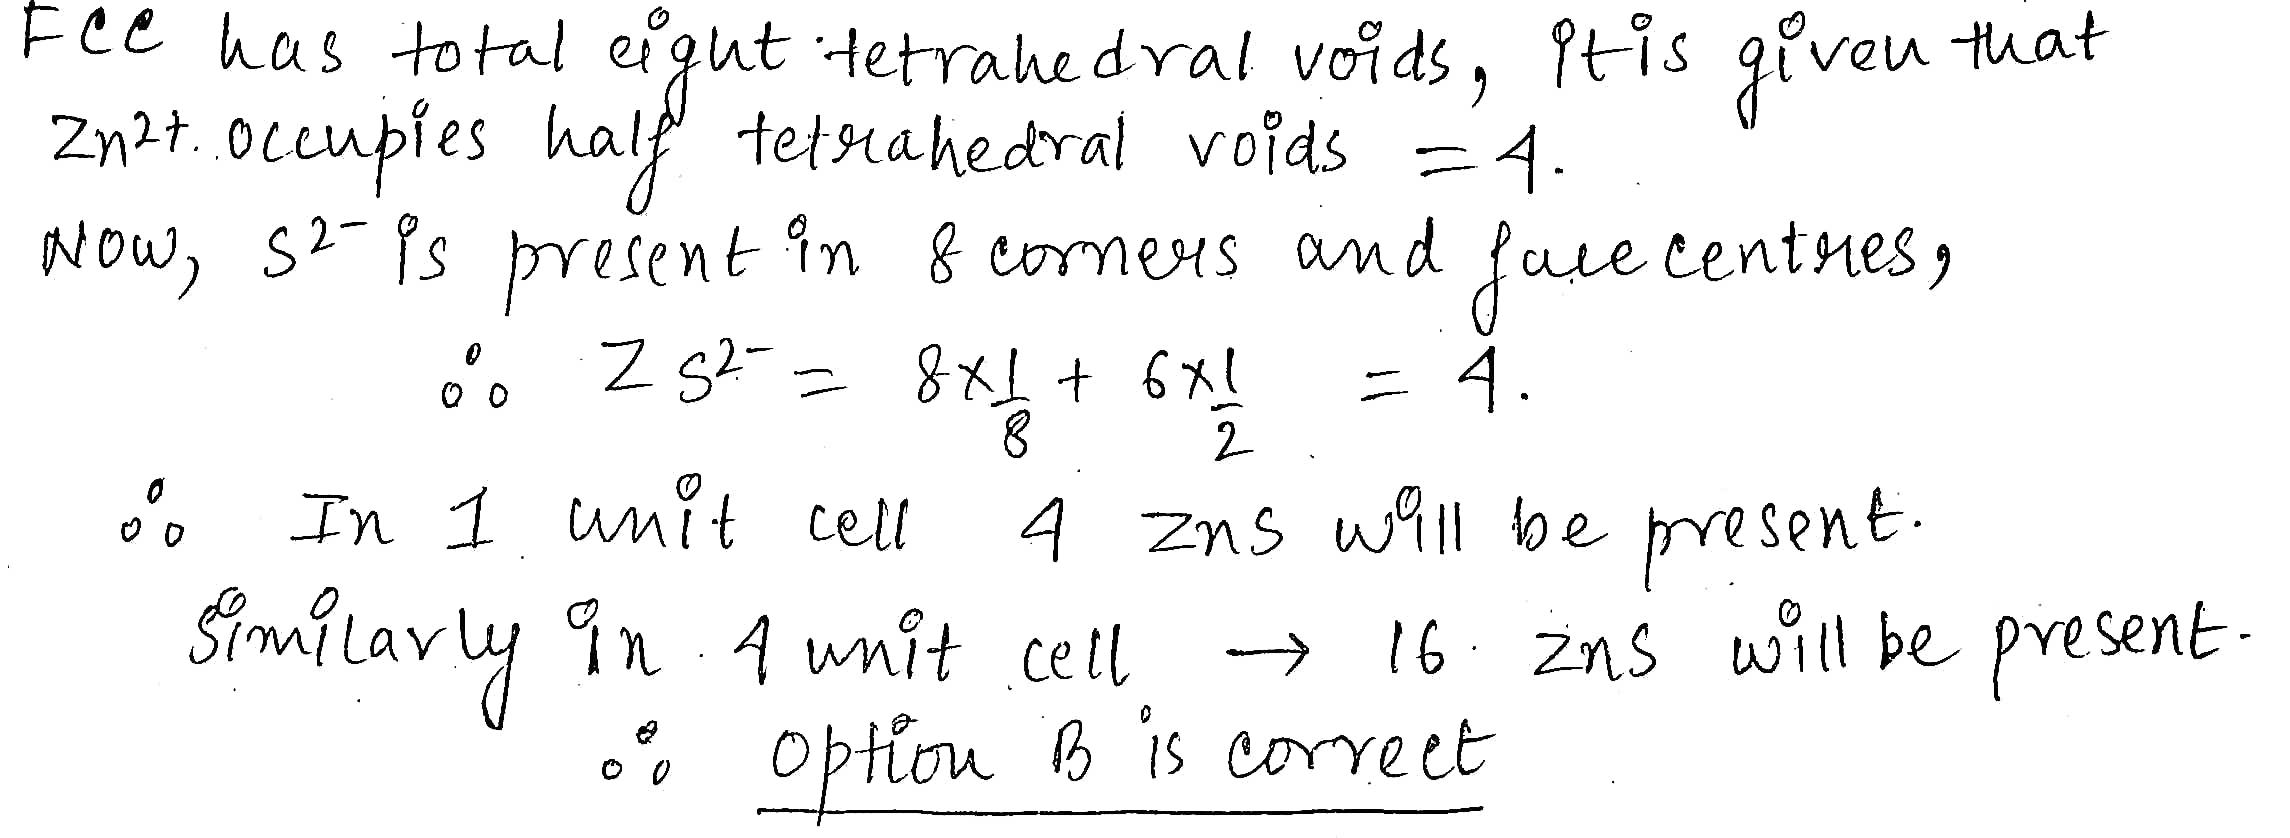 FCC has total eight tetrahedral voids, it is given that
Zn2+ occupies half tetrahedral voids = 4.
Now, S2- is present in 8 corners and face centres,
∴ Z S2- = 8×1/8 + 6×1/2 = 4.
∴ In 1 unit cell 4 zns will be present.
Similarly in 4 unit cell → 16 zns will be present.
∴ option B is correct